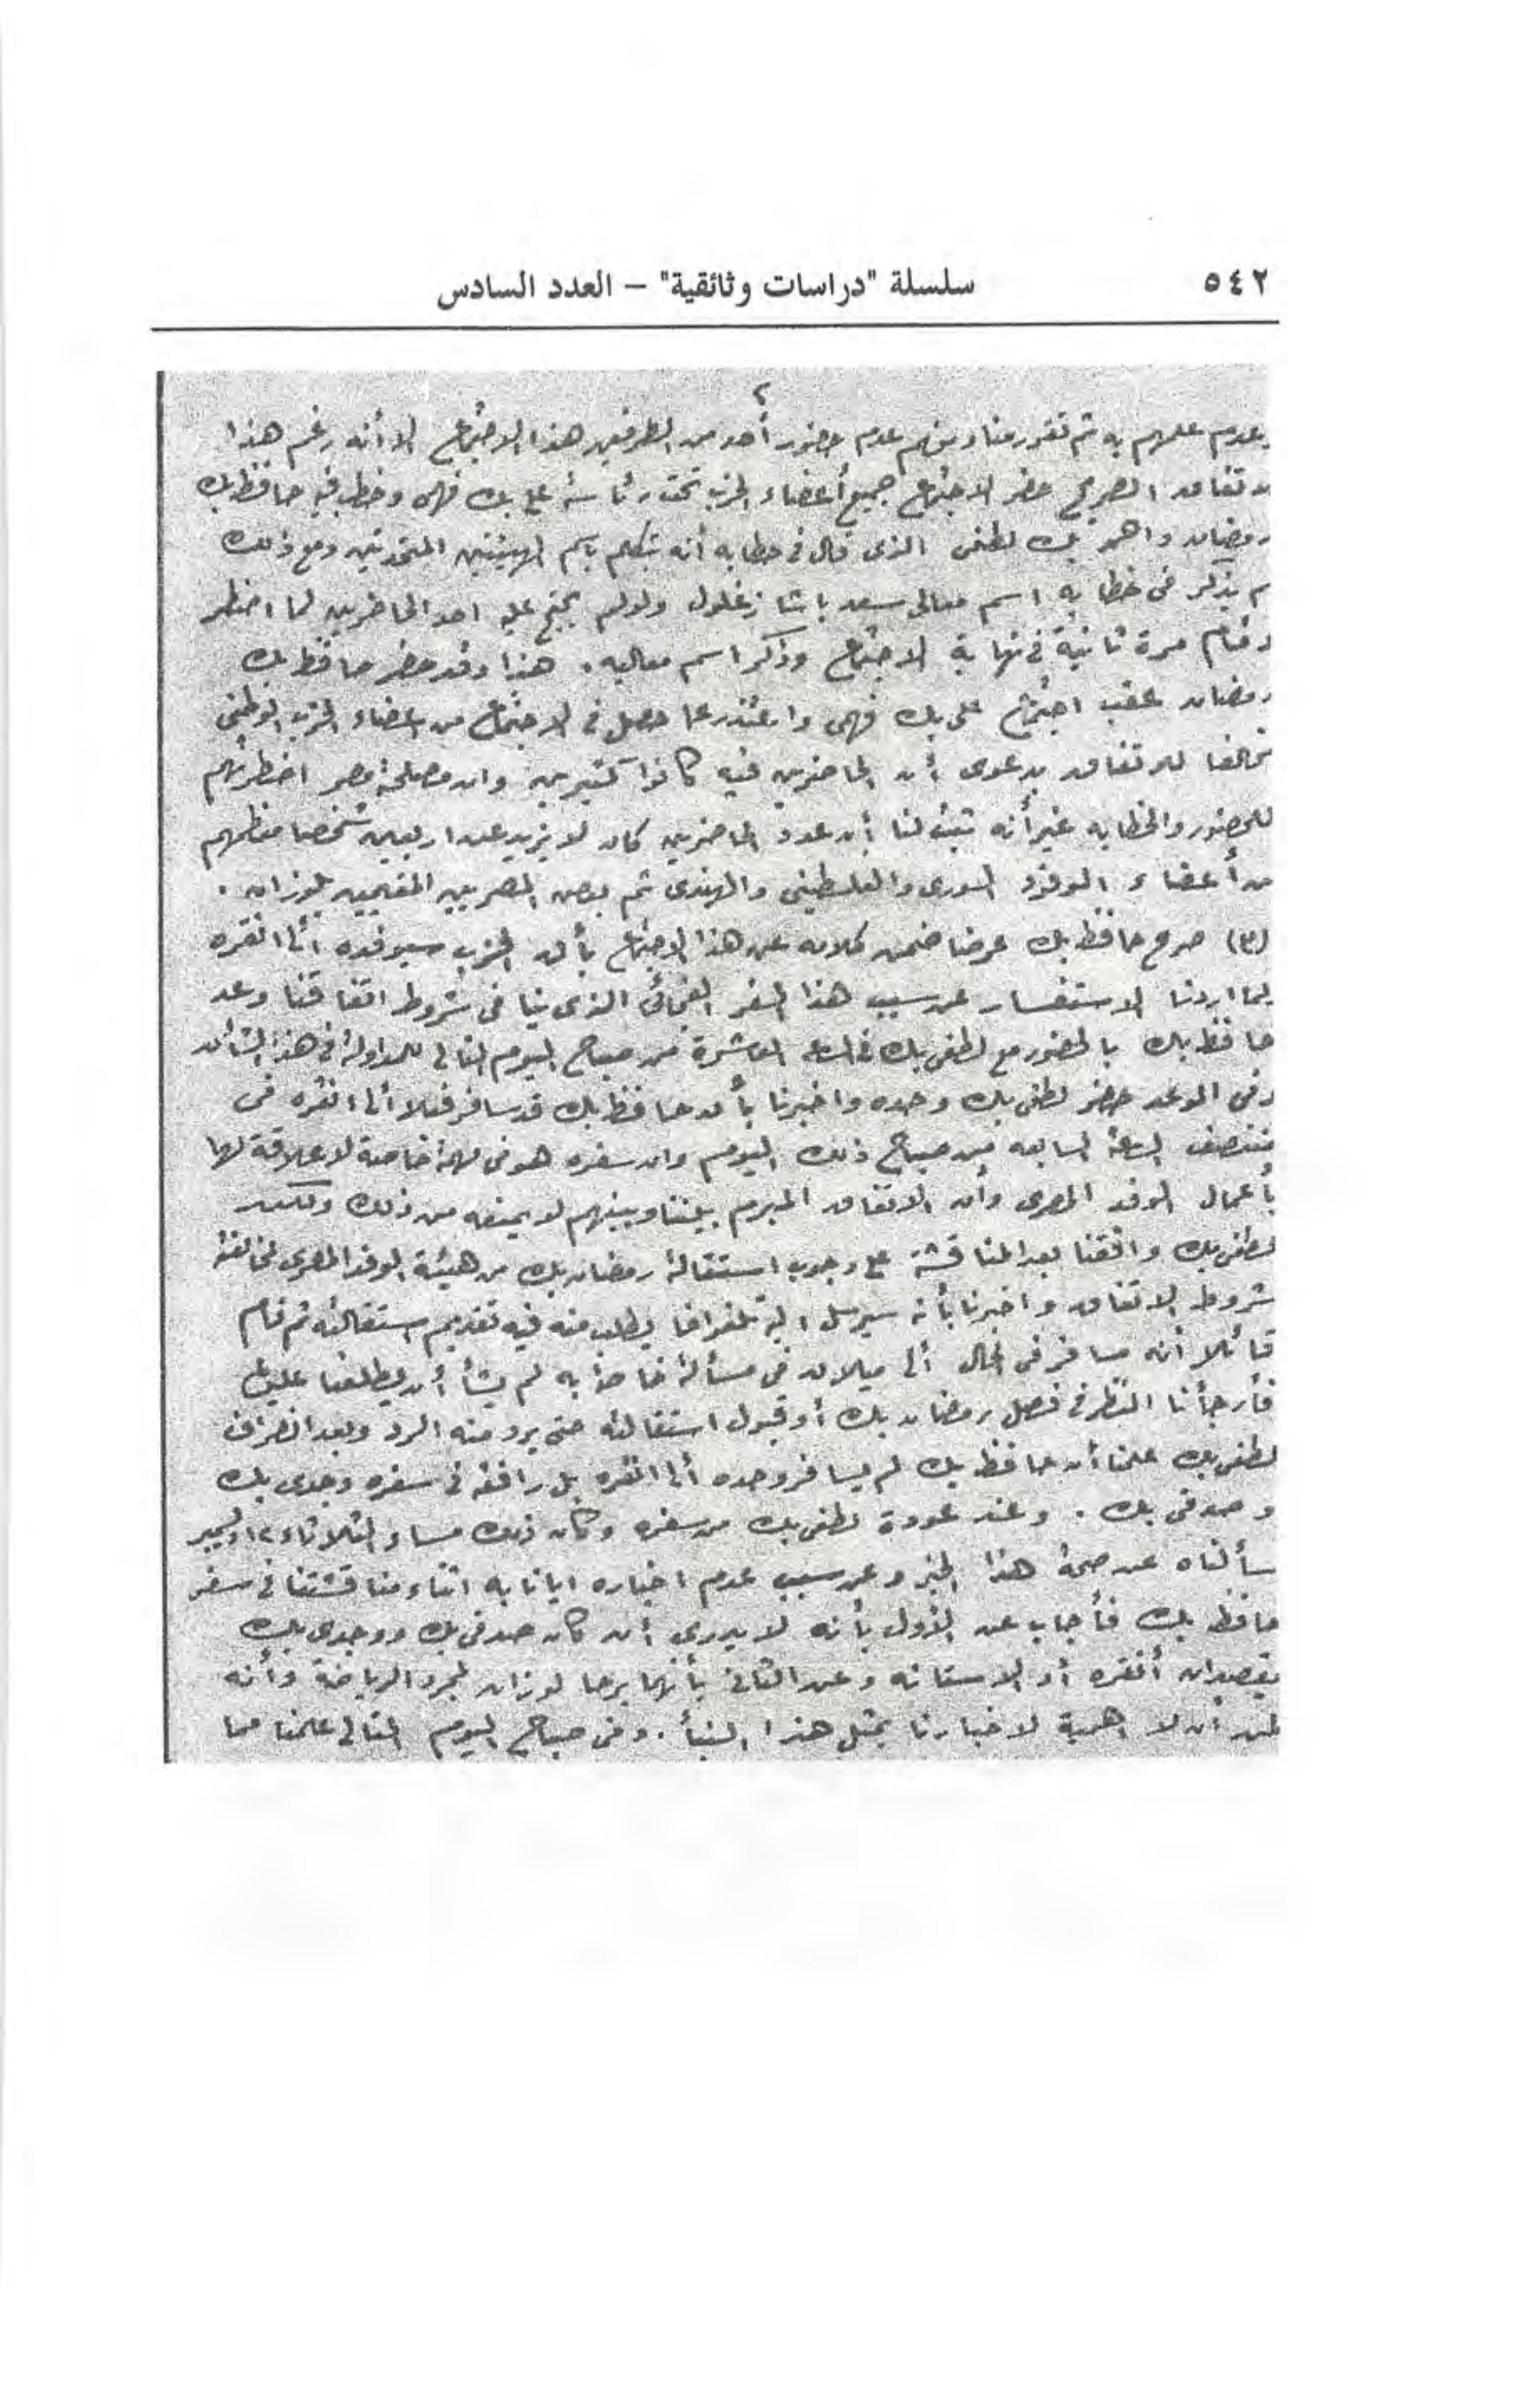 ٥٤٢ سلسلة "دراسات وثائقية" – العدد السادس
٢
وعدم علمهم به ثم تقرر منا ومنهم عدم حضور أحد من الطرفين هذا الاجتماع الا أنه رغم هذا
الاتفاق الصريح حضر الاجتماع جميع أعضاء الحزب تحت رئاسة على بك فهمى وخطب فيه حافظ بك
رمضان واحمد بك لطفى الذى قال فى خطابه أنه يتكلم باسم الهيئتين المتحدتين ومع ذلك
لم يذكر فى خطابه اسم معالى سعد باشا زغلول ولو لم يحتج عليه احد الحاضرين لما اضطر
وقام مرة ثانية فى نهاية الاجتماع وذكر اسم معاليه . هذا وقد حضر حافظ بك
رمضان عقب اجتماع على بك فهمى واعتذر عما حصل فى الاجتماع من اعضاء الحزب الوطنى
مخالفا للاتفاق بدعوى أن الحاضرين فيه كانوا كثيرين وان مصلحة مصر اضطرتهم
للحضور والخطابه غير أنه ثبت لنا أن عدد الحاضرين كان لا يزيد عن اربعين شخصا معظمهم
من أعضاء الوفود السورى والفلسطينى والهندى ثم بعض المصريين المقيمين بلوزان .
(٣) صرح حافظ بك عرضا ضمن كلامه عن هذا الاجتماع بأن الحزب سيوفده الى انقره
لما اردنا الاستفسار عن سبب هذا السفر الفجائى الذى ينافى شروط اتفاقنا وعد
حافظ بك بالحضور مع لطفى بك فى الساعه العاشرة من صباح اليوم التالى للمداولة فى هذا الشأن
وفى الموعد حضر لطفى بك وحده واخبرنا بأن حافظ بك قد سافر فعلا الى انقره فى
منتصف الساعة السابعه من صباح ذلك اليوم وان سفره هو فى مهمة خاصة لا علاقة لها
بأعمال الوفد المصرى وأن الاتفاق المبرم بيننا وبينهم لا يمنعه من ذلك ولكن
لطفى بك وافقنا بعد المناقشة على وجوب استقالة رمضان بك من هيئة الوفد المصرى لمخالفته
شروط الاتفاق واخبرنا بأنه سيرسل اليه تلغرافا يطلب منه فيه تقديم استقالته ثم قام
قائلا أنه مسافر فى الحال الى ميلان فى مسألة خاصة به لم يشأ أن يطلعنا عليها
فأرجأنا النظر فى فصل رمضان بك أو قبول استقالته حتى يرد منه الرد وبعد انصراف
لطفى بك علمنا أن حافظ بك لم يسافر وحده الى انقره بل رافقه فى سفره وجدى بك
وصدقى بك . وعند عودة لطفى بك من سفره وكان ذلك مساء الثلاثاء ١٢ ديسمبر
سألناه عن صحة هذا الخبر وعن سبب عدم اخباره ايانا به اثناء مناقشتنا فى سفر
حافظ بك فأجاب عن الأول بأنه لا يدرى أن كان صدقى بك ووجدى بك
يقصدان أنقره أو الاستانه وعن الثانى بأنهما برحا لوزان لمجرد الرياضة وأنه
ظن أن لا اهمية لاخبارنا بمثل هذا النبأ . وفى صباح اليوم التالى علمنا مما